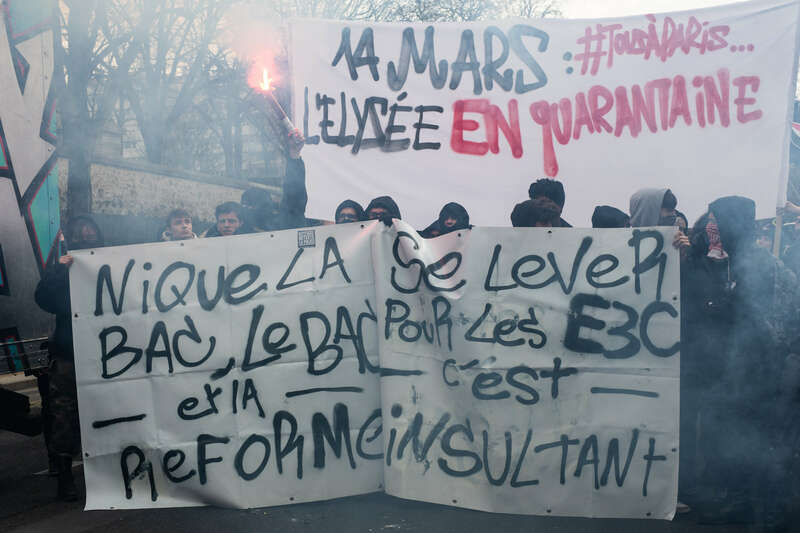 14 MARS : #TOUSÀPARIS...
L'ELYSÉE EN QUARANTAINE
NIQUE LA
BAC, LE BAC
ET LA
REFORME
SE LEVER
POUR LES E3C
C'EST
INSULTANT